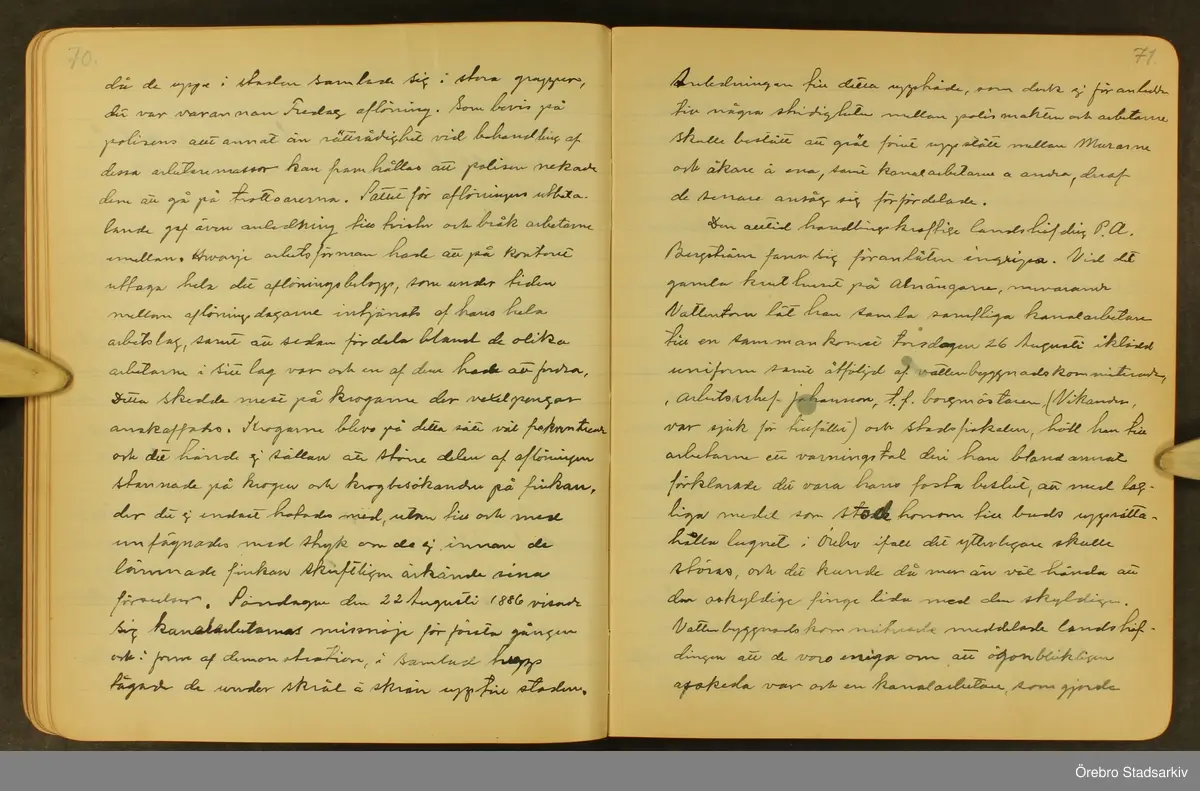 70.
då de uppe i staden samlade sig i stora grupper,
då var varannan Fredag aflöning. Som bevis på
polisens allt annat än rättrådighet vid behandling af
dessa arbetaremassor kan framhållas att polisen nekade
dem att gå på trottoarerna. Sättet för aflöningens utbeta-
lande gaf även anledning till tvister och bråk arbetarne
emellan. Hvarje arbetsförman hade att på kontoret
uttaga hela det aflöningsbelopp, som under tiden
mellan aflöningsdagarne intjänats af hans hela
arbetslag, samt att sedan fördela bland de olika
arbetarne i sitt lag var och en af dem hade att fordra.
Detta skedde mest på krogarne der vexelpengar
anskaffades. Krogarne blevo på detta sätt väl frekventerade
och det hände ej sällan att större delen af aflöningen
stannade på krogen och krogbesökanden på finkan,
der det ej endast hotades med, utan till och med
undfägnades med stryk om de ej innan de
lämnade finkan skriftligen erkände sina
förseelser. Söndagen den 22 Augusti 1886 visade
sig kanalarbetarnas missnöje för första gången
och i form af demonstration, i samlad tropp
tågade de under skrål å skrän upp till staden.
71.
Anledningen till detta uppträde, som dock ej föranledde
till några stridigheter mellan polismakten och arbetarne
skulle bestått att gräl förut uppstått mellan Murarne
och åkare å ena, samt kanalarbetarne a andra, deraf
de senare ansåg sig förfördelade.
Den alltid handlingskraftige landshöfding P. A.
Bergström fann sig föranlåten ingripa. Vid det
gamla kruthuset på Alnängarne, nuvarande
Vattentorn lät han samla samtliga kanalarbetare
till en sammankomst Torsdagen 26 Augusti iklädd
uniform samt åtföljd af vattenbyggnadskommitterade,
arbetschef Johansson, t.f. borgmästaren (Vikander,
var sjuk för tillfället) och stadsfiskalen, höll han till
arbetarne ett varningstal deri han bland annat
förklarade det vara hans fasta beslut, att med lag-
liga medel som stode honom till buds upprätta-
hålla lugnet i Örebro ifall det ytterligare skulle
störas, och det kunde då mer än väl hända att
den oskyldige finge lida med den skyldige.
Vattenbyggnadskommitterade meddelade landshöf-
dingen att de voro eniga om att ögonblickligen
afskeda var och en kanalarbetare, som gjorde
Örebro Stadsarkiv